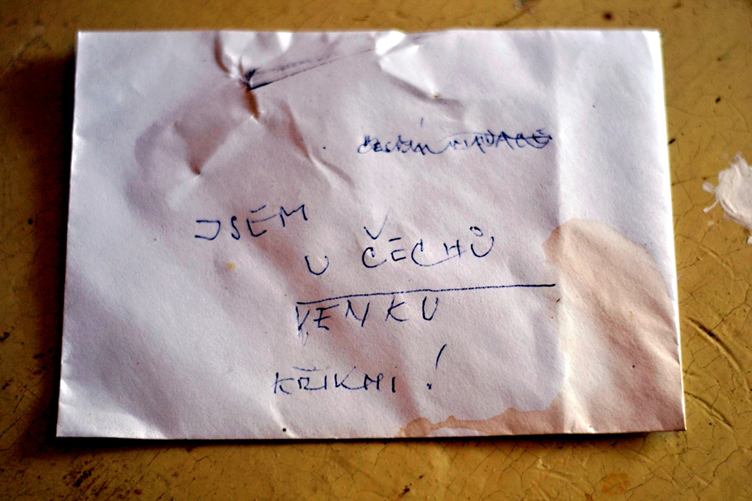 JSEM
U ČECHŮ
VENKU
KŘIKNI!